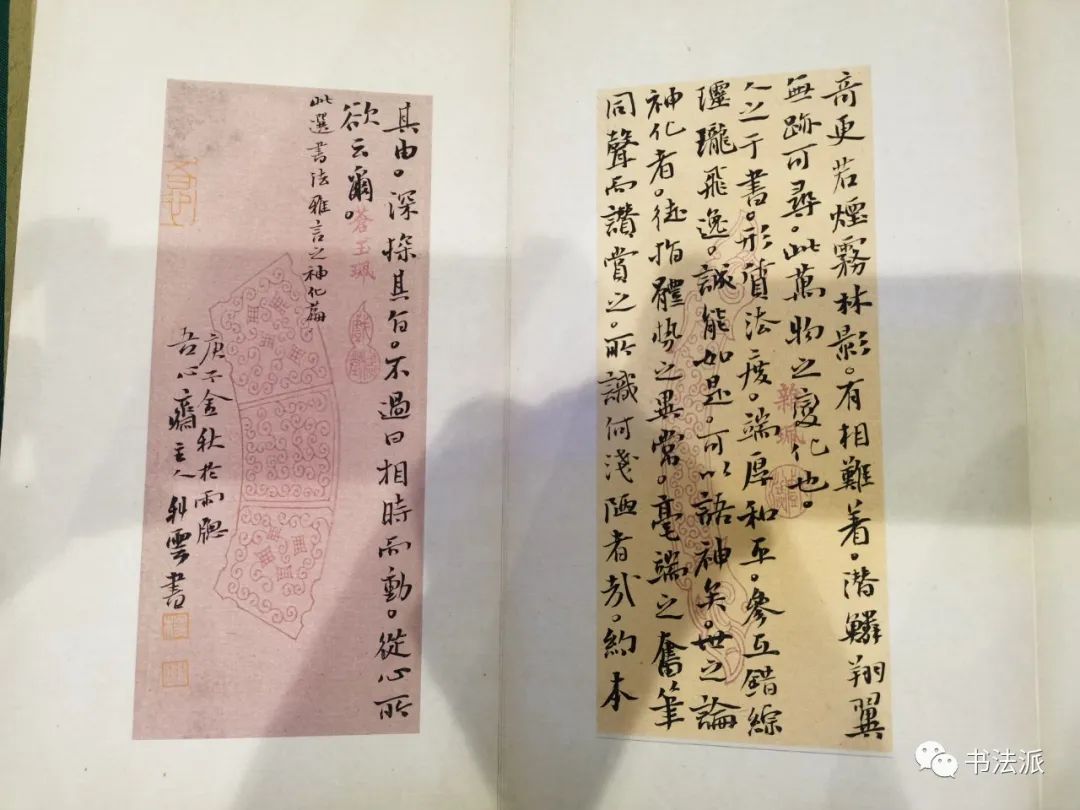 奇更若煙霧林影。有相難着。潛鱗翔翼
無跡可尋。此萬物之變化也。
雜珮
人之于書。形質法度。端厚和平。參互錯綜
瓏飛逸。誠能如是。可以語神矣。世之論
神化者。徒指體勢之異常。毫端之奮筆
同聲而讚賞之。所識何淺陋者哉。約本
其由。深探其旨。不過曰相時而動。從心所
欲云爾。
蒼玉珮
此選書法雅言之神化篇
庚子金秋於雨聽
吾心齋主人 雲書
书法派